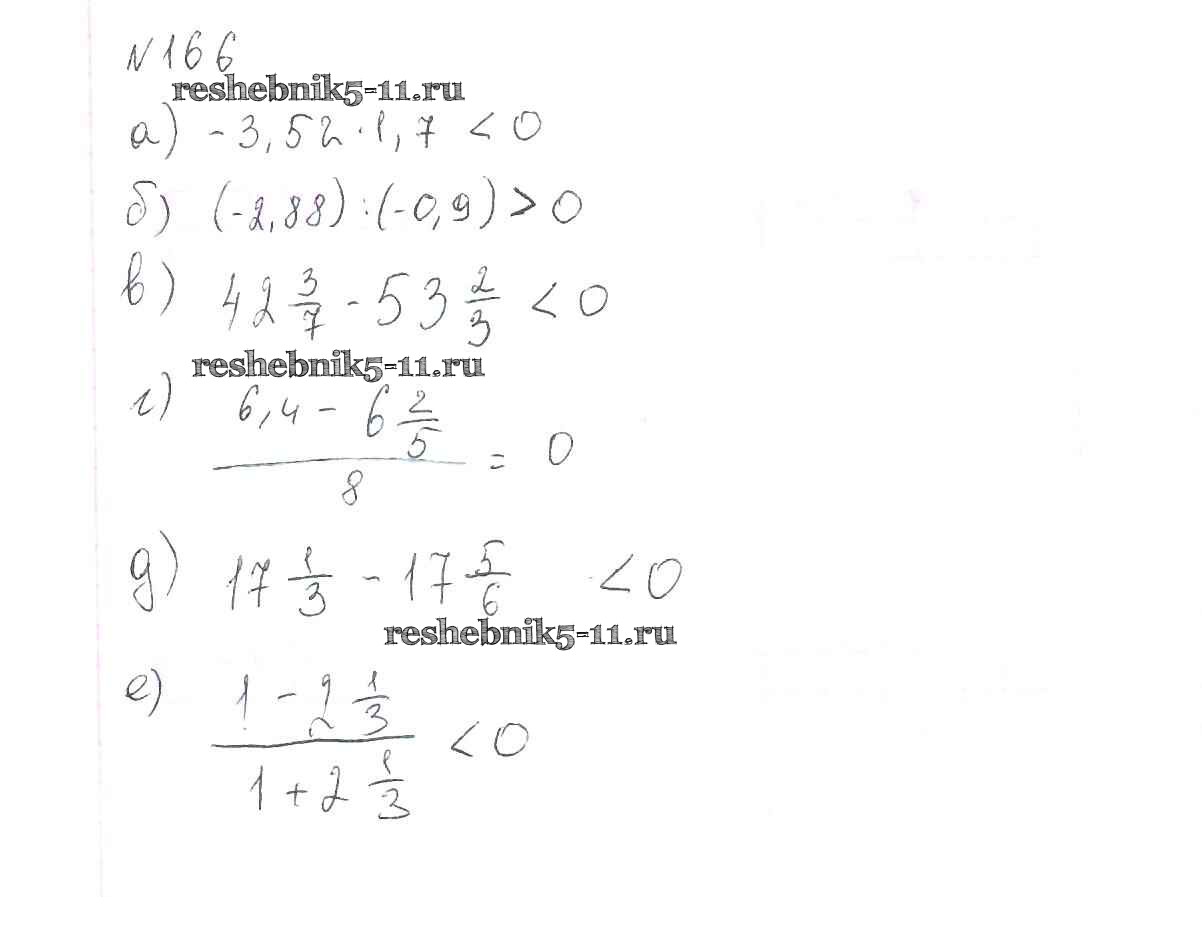 №166
reshebnik5-11.ru
а) -3,52·1,7 < 0
б) (-2,88):(-0,9) > 0
в) 42 3/7 - 53 2/3 < 0
reshebnik5-11.ru
г) (6,4 - 6 2/5)/8 = 0
д) 17 1/3 - 17 5/6 < 0
reshebnik5-11.ru
е) (1 - 2 1/3)/(1 + 2 1/3) < 0